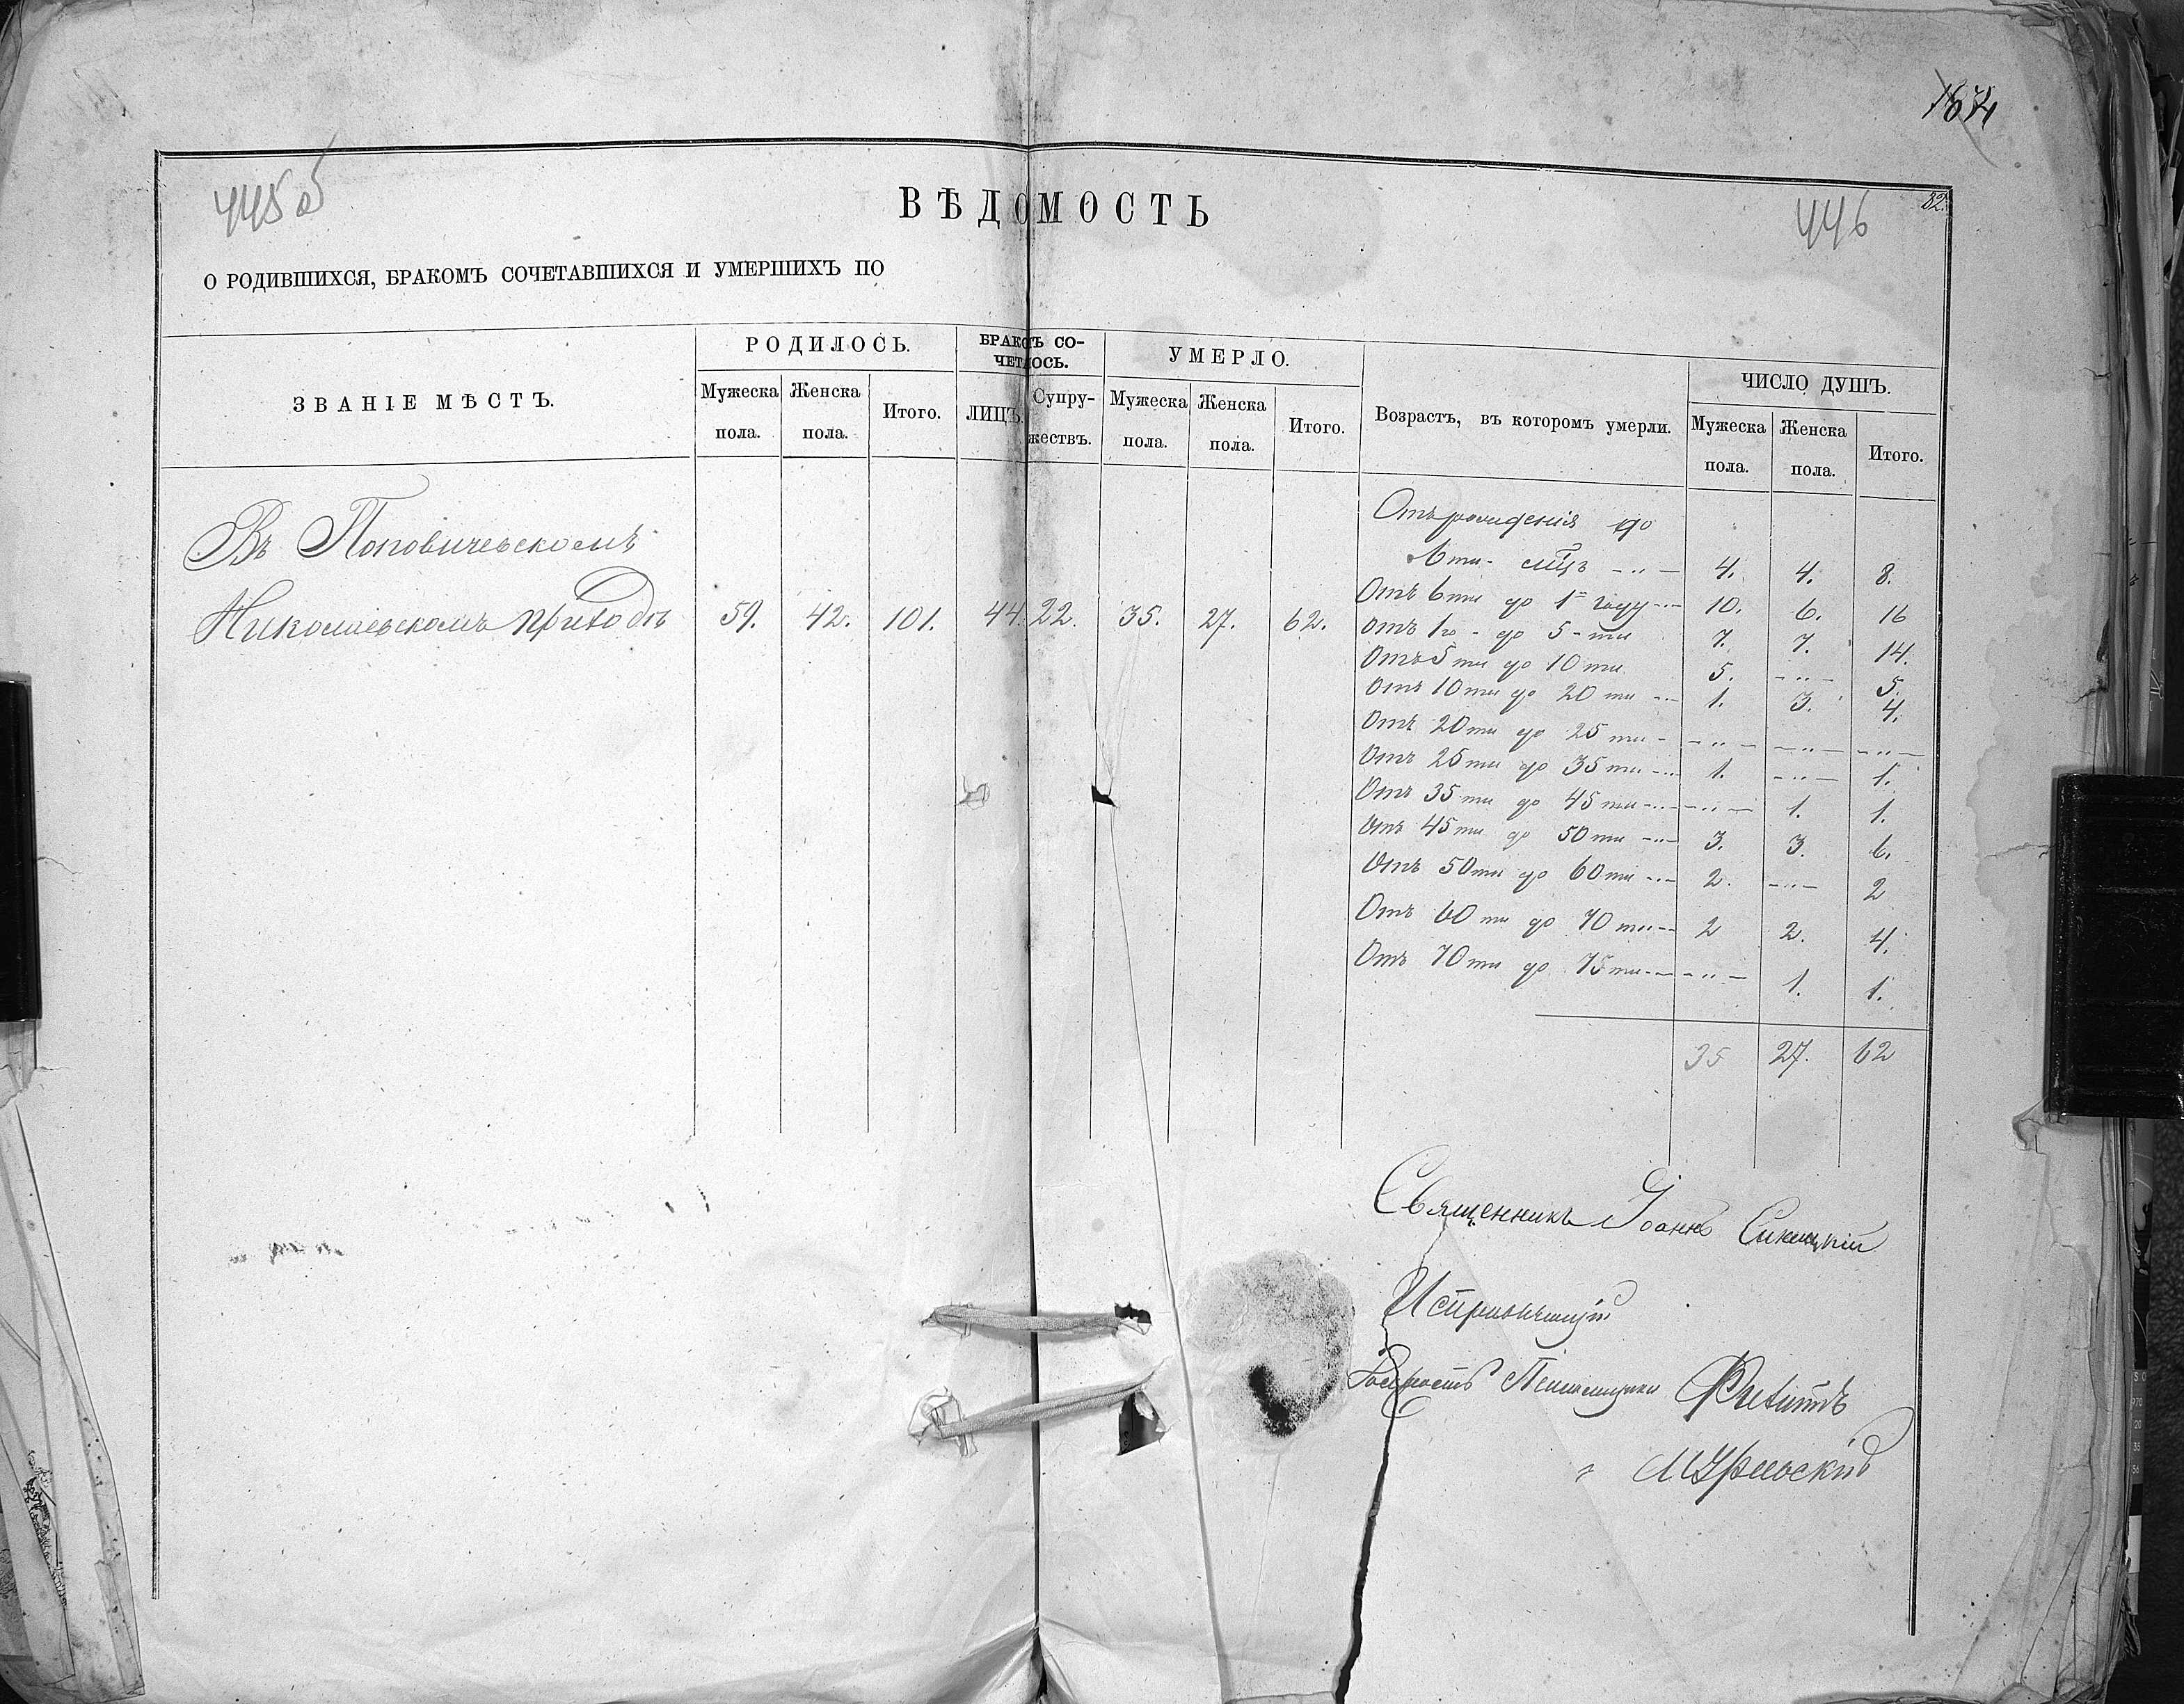 445 об
446
82.
ВѢДОМОСТЬ
О РОДИВШИХСЯ, БРАКОМЪ СОЧЕТАВШИХСЯ И УМЕРШИХЪ ПО
ЗВАНІЕ МѢСТЪ.
РОДИЛОСЬ.
Мужеска пола.
Женска пола.
Итого.
БРАКОМЪ СО-
ЧЕТАЛОСЬ.
ЛИЦЪ.
Супру-
жествъ.
УМЕРЛО.
Мужеска пола.
Женска пола.
Итого.
Возрастъ, въ которомъ умерли.
ЧИСЛО ДУШЪ.
Мужеска пола.
Женска пола.
Итого.
Въ Поповичевскомъ
Николаевскомъ приходѣ 59. 42. 101. 44. 22. 35. 27. 62.
Отъ рожденія до
6ти мцъ - „ - 4. 4. 8.
Отъ 6ти до 1го году - „ - 10. 6. 16
Отъ 1го - до 5-ти 7. 7. 14.
Отъ 5ти до 10ти 5. - „ - 5.
Отъ 10ти до 20ти - „ - 1. 3. 4.
Отъ 20ти до 25ти - - „ - - „ - - „ -
Отъ 25ти до 35ти - „ - 1. - „ - 1.
Отъ 35ти до 45ти - „ - - „ - 1. 1.
Отъ 45ти до 50ти - „ - 3. 3. 6.
Отъ 50ти до 60ти - „ - 2. - „ - 2
Отъ 60ти до 70ти - - 2 2. 4.
Отъ 70ти до 75ти - - - „ - 1. 1.
35 27. 62
Священникъ Іоаннъ